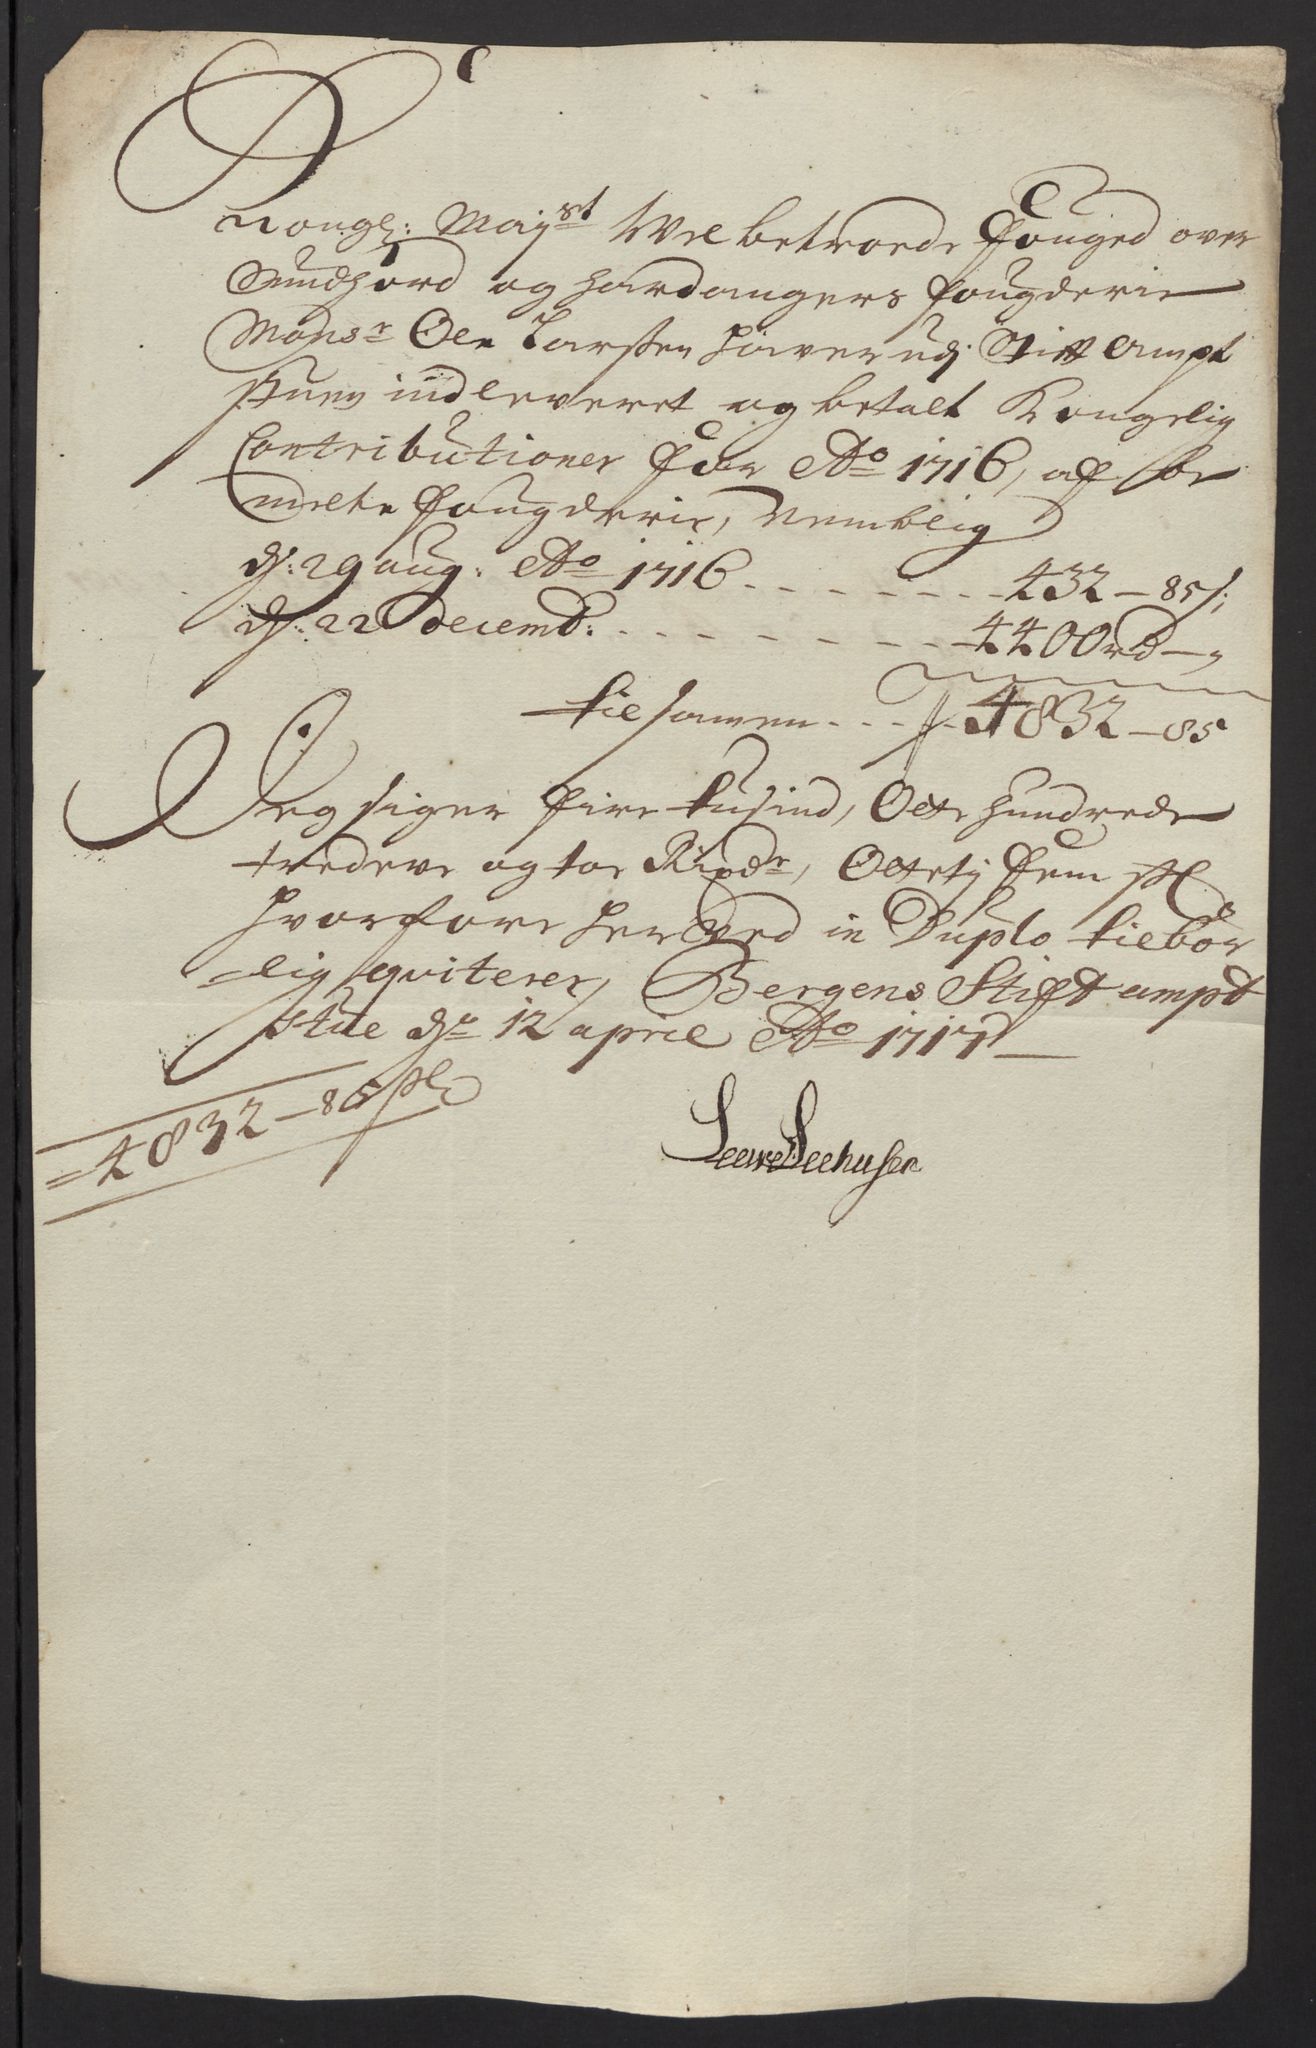 Kongl: Mayst Wel betroede Fouged over
Sundhord og Hardangers fougderie
Monsr Ole Larsen haver udj Stift Ampt
stuen indleveret og betalt Kongelig
Contributioner for Ao 1716, af be
melte fougderie, Nemblig
dj: 29 aug: Ao 1716 - - - - - - - 432 - 85 s;
dj: 22 decemb: - - - - - - - - 4400 rd - ,
tilsamen - - - 4832 - 85
Jeg siger fire tusind, Otte hundrede
tredeve og toe Rixdr, Ottetj fem sk
hvorfore herved in Duplo tilbør
-lig qviterer, Bergens Stift ampt
stue dn 12 april Ao 1717
= 4832 - 85 sk
Leewe Seehusen